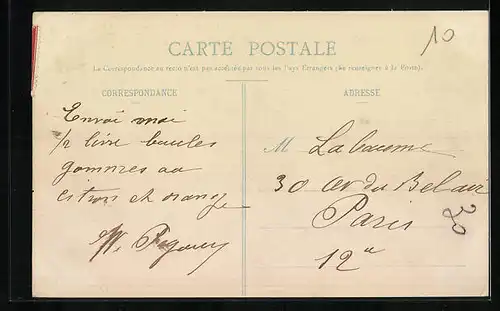 CARTE POSTALE
La Correspondance au recto n'est pas acceptée par tous les Pays Étrangers (Se renseigner à la Poste).
CORRESPONDANCE
ADRESSE
10
Envoi moi
1/2 livre boules
gommes au
citron et orange
M
30 av du Bel air
Paris
12e
30